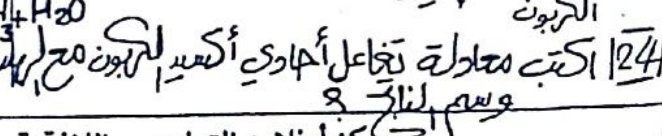 H2O
الكربون
124/ اكتب معادلة تفاعل أحادي أكسيد الكربون مع
وسم الناتج ؟